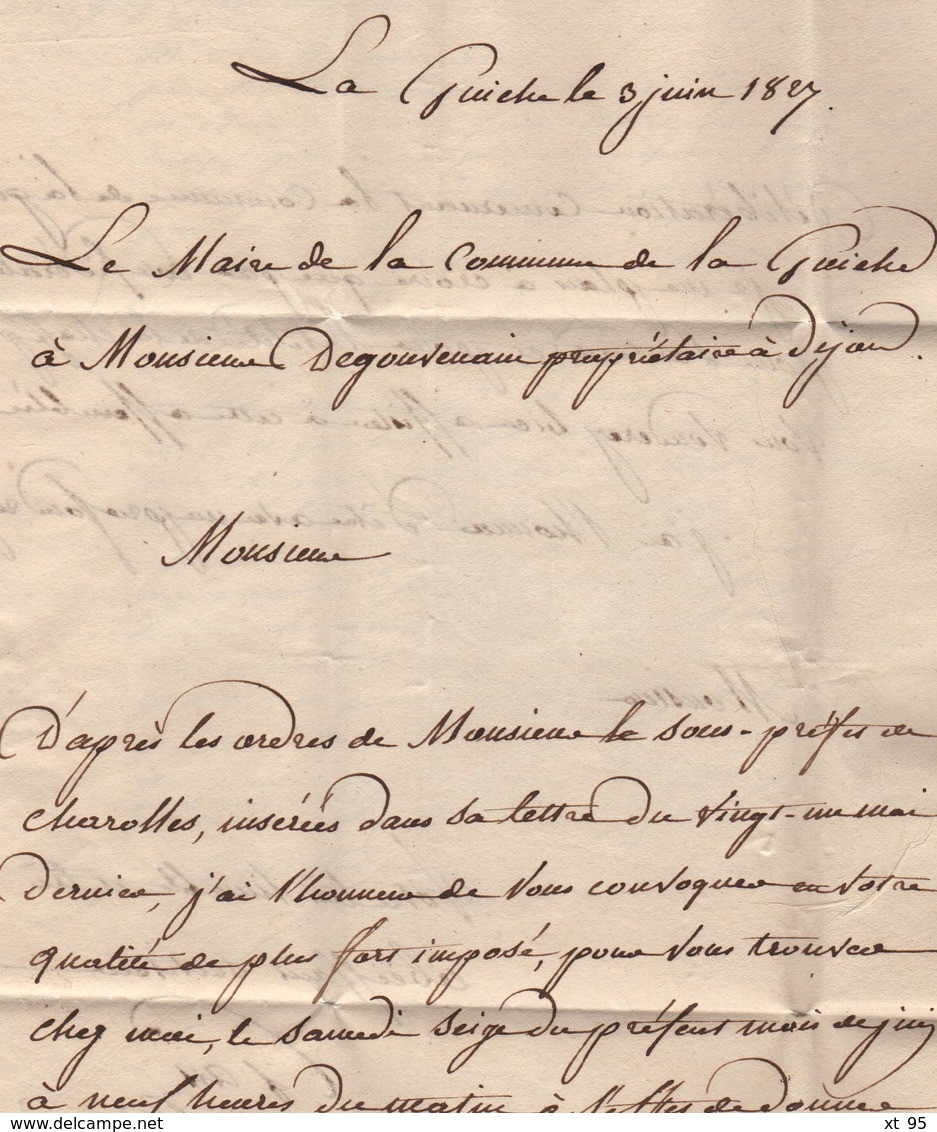 La Guiche le 3 juin 1827.
Le Maire de la Commune de la Guiche
à Monsieur Degouvenain propriétaire à Dijon.
Monsieur
D'après les ordres de Monsieur le sous-préfet de
Charolles, insérées dans sa lettre du vingt-un mai
dernier, j'ai l'honneur de vous convoquer en votre
qualité de plus fort imposé, pour vous trouver
chez moi, le samedi seize du présent mois de juin
à neuf heures du matin à l'effet de donner
www.delcampe.net
xt 95